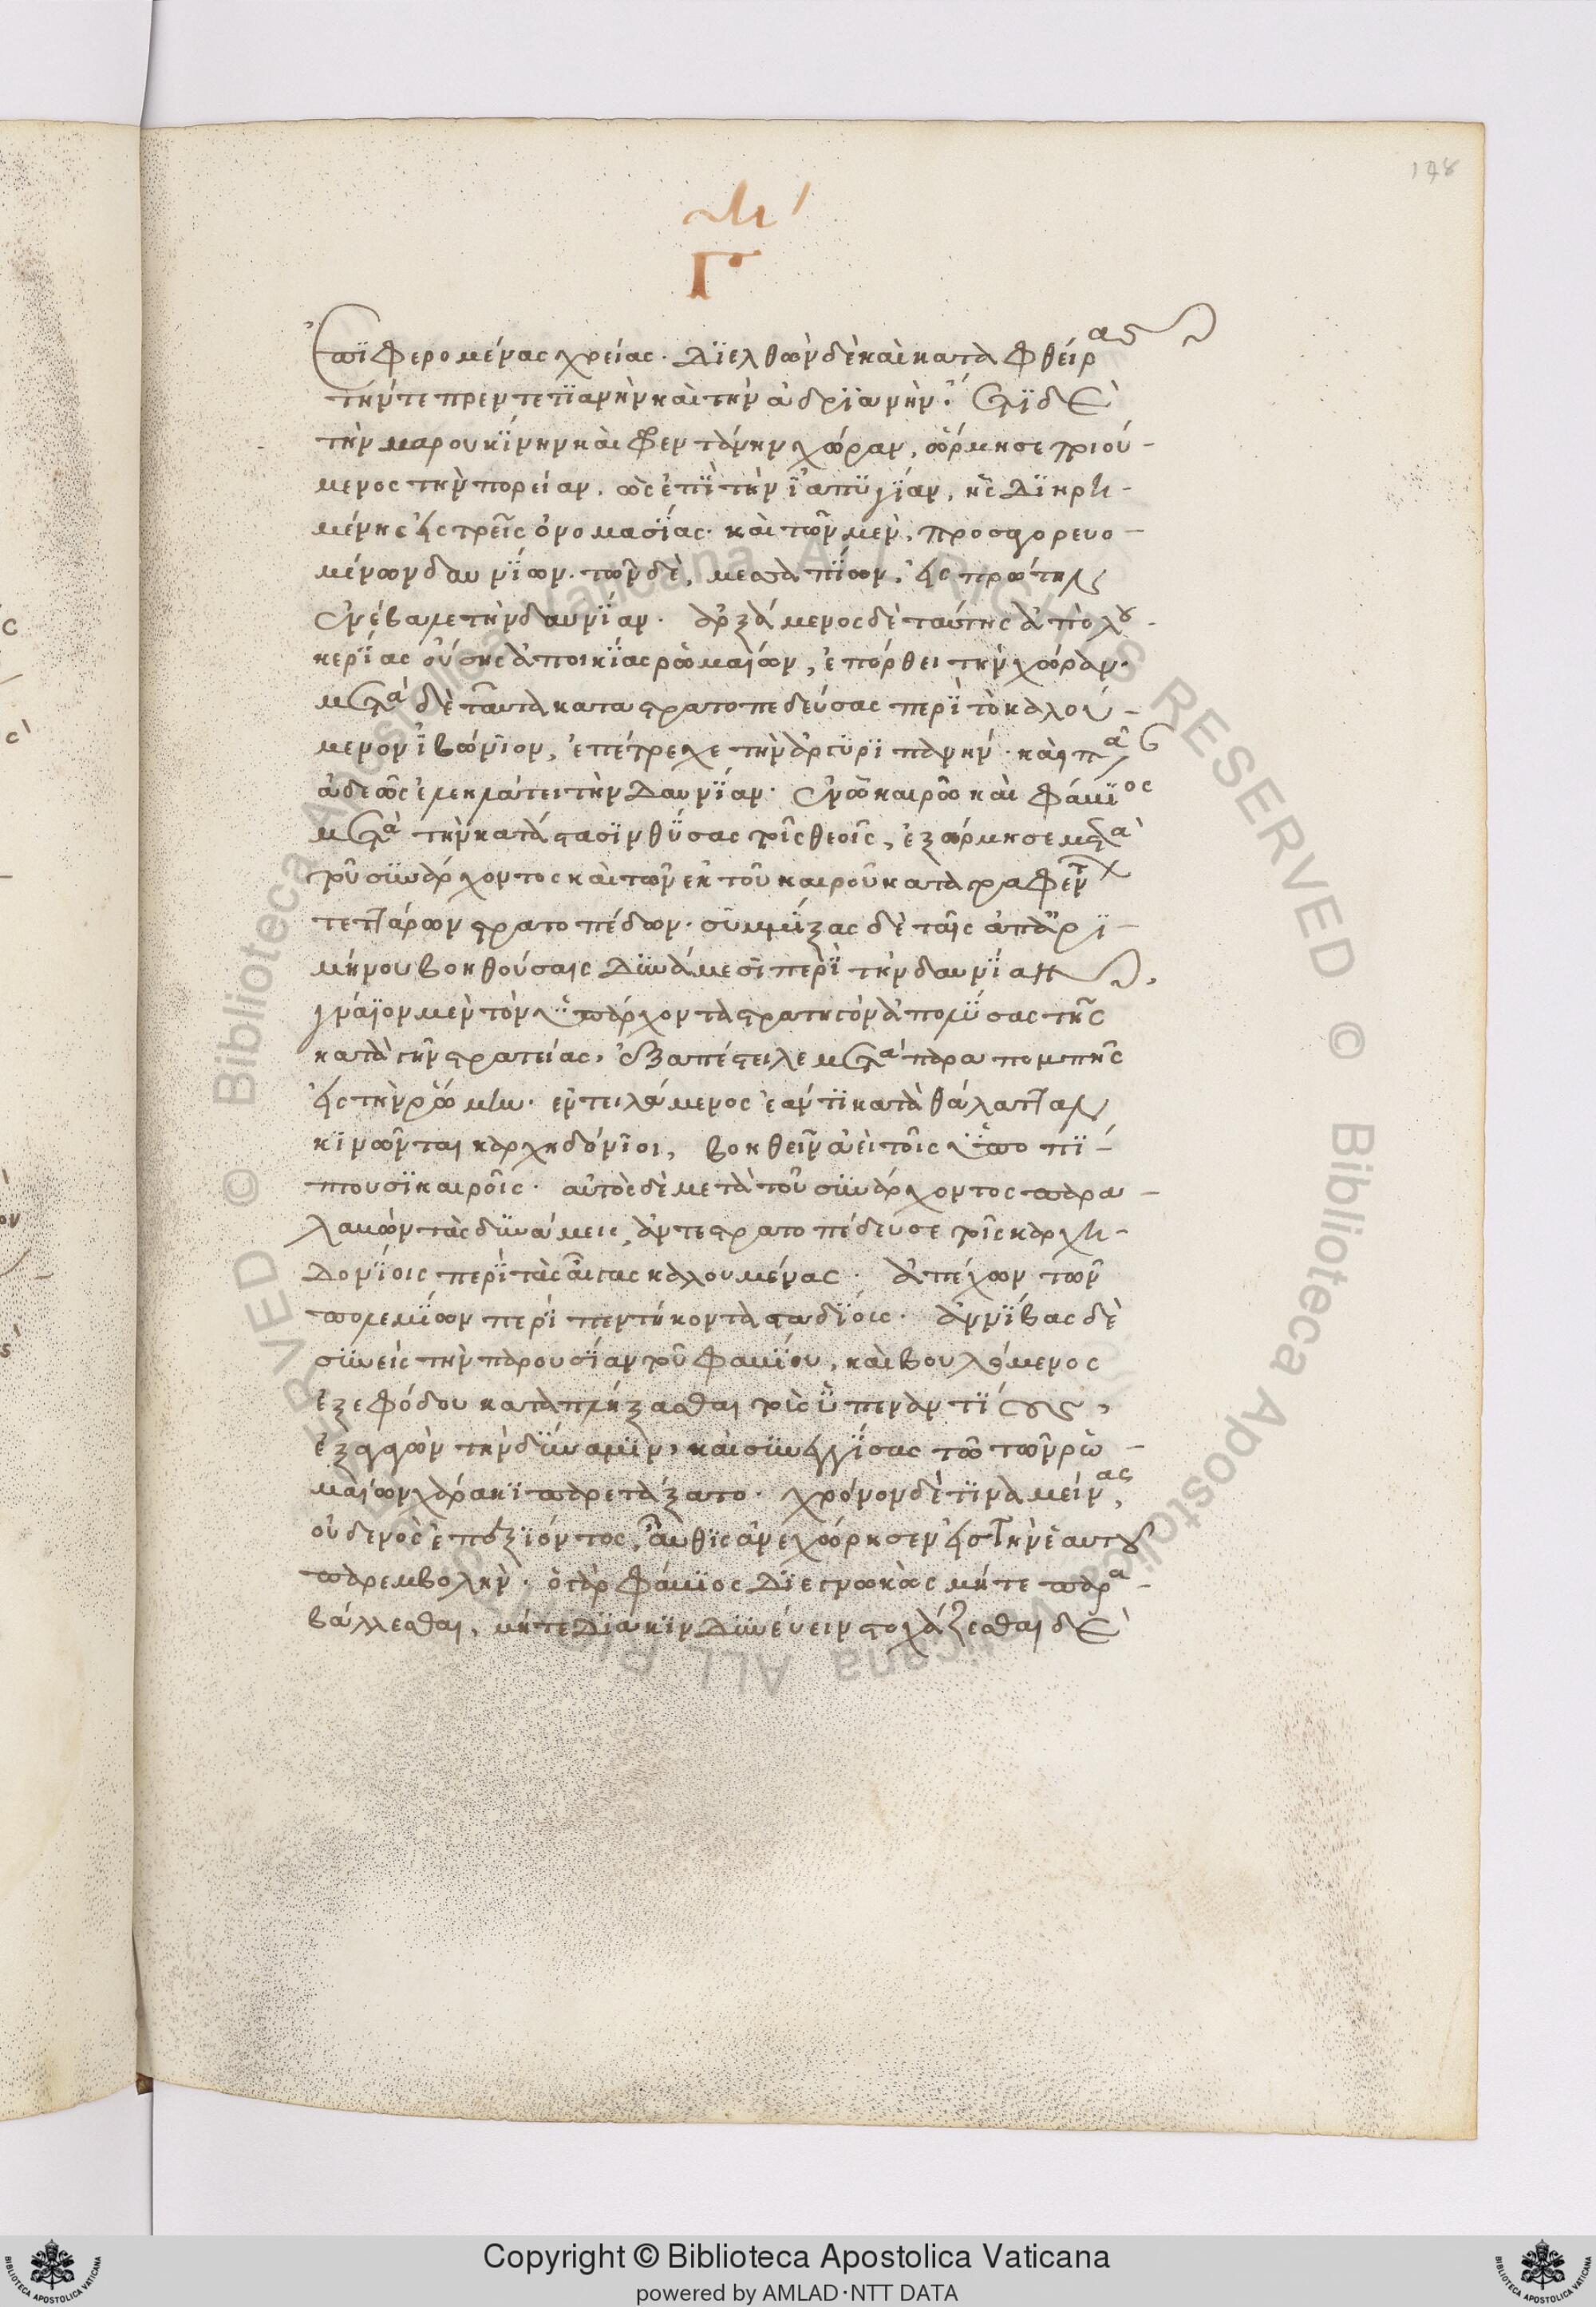 198
Γ
ἐπιφερομένας χρείας. διελθὼν δὲ καὶ καταφθείρας
τήν τε πρεντετιανὴν καὶ τὴν ἀδριανὴν. ἔτι δὲ
τὴν μαρουκίνην καὶ φεντάνην χώραν, ὥρμησε ποιού-
μενος τὴν πορείαν. ὡς ἐπὶ τὴν ἰαπυγίαν, ἧς διῃρη-
μένης εἰς τρεῖς ὀνομασίας. καὶ τῶν μὲν, προσαγορευο-
μένων δαυνίων. τῶν δὲ, μεσαπίων. εἰς πρώτην
ἐνέβαλε τὴν δαυνίαν. ἀρξάμενος δὲ ταύτης ἀπὸ λου-
κερίας οὔσης ἀποικίας ρωμαίων, ἐπόρθει τὴν χώραν.
μετὰ δὲ ταῦτα καταστρατοπεδεύσας περὶ τὸ καλού-
μενον ἰβώνιον, ἐπέτρεχε τὴν ἀργυριπανήν. καὶ πᾶσαν
ἀδεῶς ἐλεηλάτει τὴν δαυνίαν. ἐν ᾧ καιρῷ καὶ φάμιος
μετὰ τὴν κατάστασιν θύσας τοῖς θεοῖς, ἐξώρμησε μετὰ
τοῦ συνάρχοντος καὶ τῶν ἐκ τοῦ καιροῦ καταγραφέντων
τεττάρων στρατοπέδων. συμμίξας δὲ ταῖς ἀπ' ἀρι-
μήνου βοηθούσαις δυνάμεσι περὶ τὴν δαυνίαν,
γνάϊον μὲν τὸν ὑπάρχοντα στρατηγὸν ἀπολύσας τῆς
κατὰ γῆν στρατείας, ἐξαπέστειλε μετὰ παραπομπῆς
εἰς τὴν ρώμην. ἐντειλάμενος ἐάν τι κατὰ θάλατταν
κινῶνται καρχηδόνιοι, βοηθεῖν ἀεὶ τοῖς ὑποπί-
πτουσι καιροῖς. αὐτὸς δὲ μετὰ τοῦ συνάρχοντος παρα-
λαβὼν τὰς δυνάμεις, ἀντεστρατοπέδευσε τοῖς καρχη-
δονίοις περὶ τὰς αἶκας καλουμένας. ἀπέχων τῶν
πολεμίων περὶ πεντήκοντα σταδίοις. ἀννίβας δὲ
συνεὶς τὴν παρουσίαν τοῦ φαμίου, καὶ βουλόμενος
ἐξ ἐφόδου καταπλήξασθαι τοὺς ὑπεναντίους,
ἐξαγαγὼν τὴν δύναμιν, καὶ συνεγγίσας τῷ τῶν ρω-
μαίων χάρακι παρετάξατο. χρόνον δὲ τινὰ μείνας,
οὐδενὸς ἐπεξιόντος, αὖθις ἀνεχώρησεν εἰς τὴν ἑαυτοῦ
παρεμβολὴν. ὁ γὰρ φάμιος διεγνωκὼς μήτε παρα-
βάλλεσθαι, μήτε διακινδυνεύειν στοχάζεσθαι δὲ
Copyright © Biblioteca Apostolica Vaticana
powered by AMLAD·NTT DATA